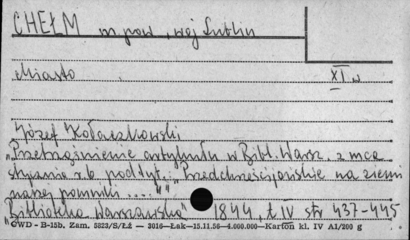 CHEŁM m. pow., woj. Lublin
Miasto XI w
Józef Kołaszkowski
"Przebażnienie artykułu w Bibl. Warsz. z m-ca
stycznia r.b. pod tyt.: "Przedchrześcijańskie na ziemi
naszej pomniki ...."
Biblioteka Warszawska" 1844, t. IV str 437-445
CWD - B-15b. Zam. 5823/S/Łż — 3016—Łak—15.11.56—4.000.000—Karton kl. IV A1/200 g